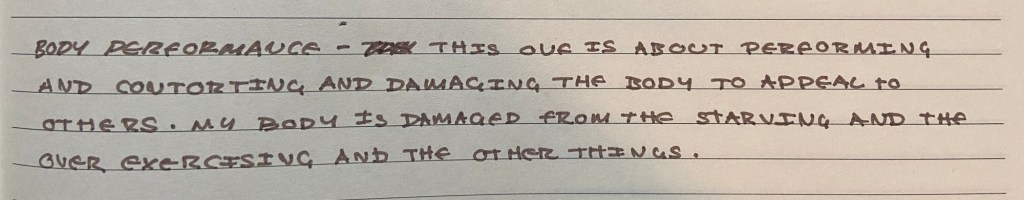 BODY PERFORMANCE - THIS ONE IS ABOUT PERFORMING
AND CONTORTING AND DAMAGING THE BODY TO APPEAL TO
OTHERS. MY BODY IS DAMAGED FROM THE STARVING AND THE
OVER EXERCISING AND THE OTHER THINGS.